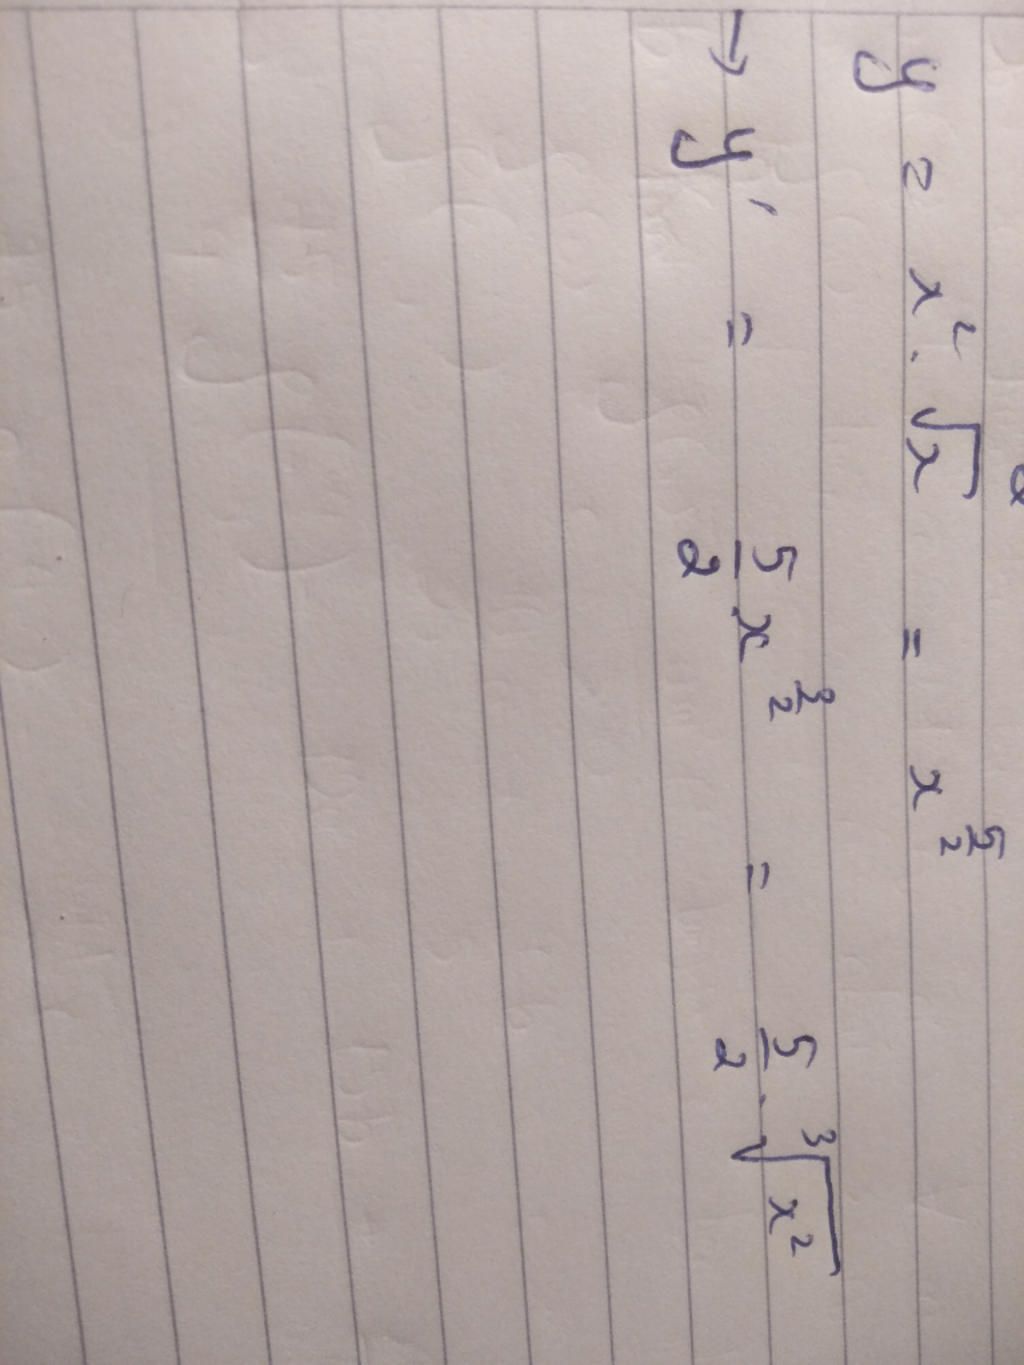 y = x² · √x = x^(5/2)
→ y' = 5/2 x^(3/2) = 5/2 · ³√(x²)